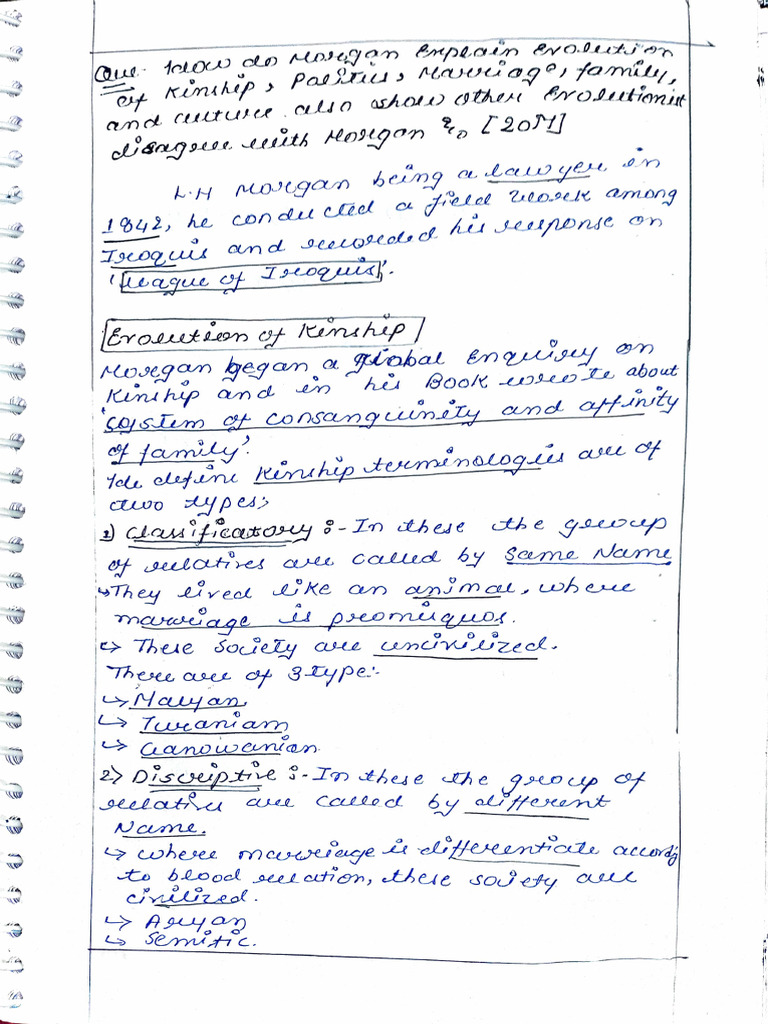 Que. How do Morgan Explain Evolution
of Kinship, Politics, Marriage, family,
and culture also show other Evolutionist
disagree with Morgan ? [20M]
L.H Morgan being a lawyer in
1842, he conducted a field work among
Iroquis and recorded his response on
'League of Iroquis'.
Evolution of Kinship
Morgan began a global Enquiry on
Kinship and in his Book wrote about
'system of consanguinity and affinity
of family'.
He define Kinship terminologies are of
two types;
1) Classificatory :- In these the group
of relatives are called by Same Name
↳ They lived like an animal, where
marriage is promisquos.
↳ These society are uncivilized.
There are of 3 type:-
↳ Malyan
↳ Turaniam
↳ Ganowanian
2) Discriptive :- In these the group of
relative are called by different
Name.
↳ where marriage is differentiate accordg
to blood relation, these society are
civilized.
↳ Aryan
↳ Semitic.